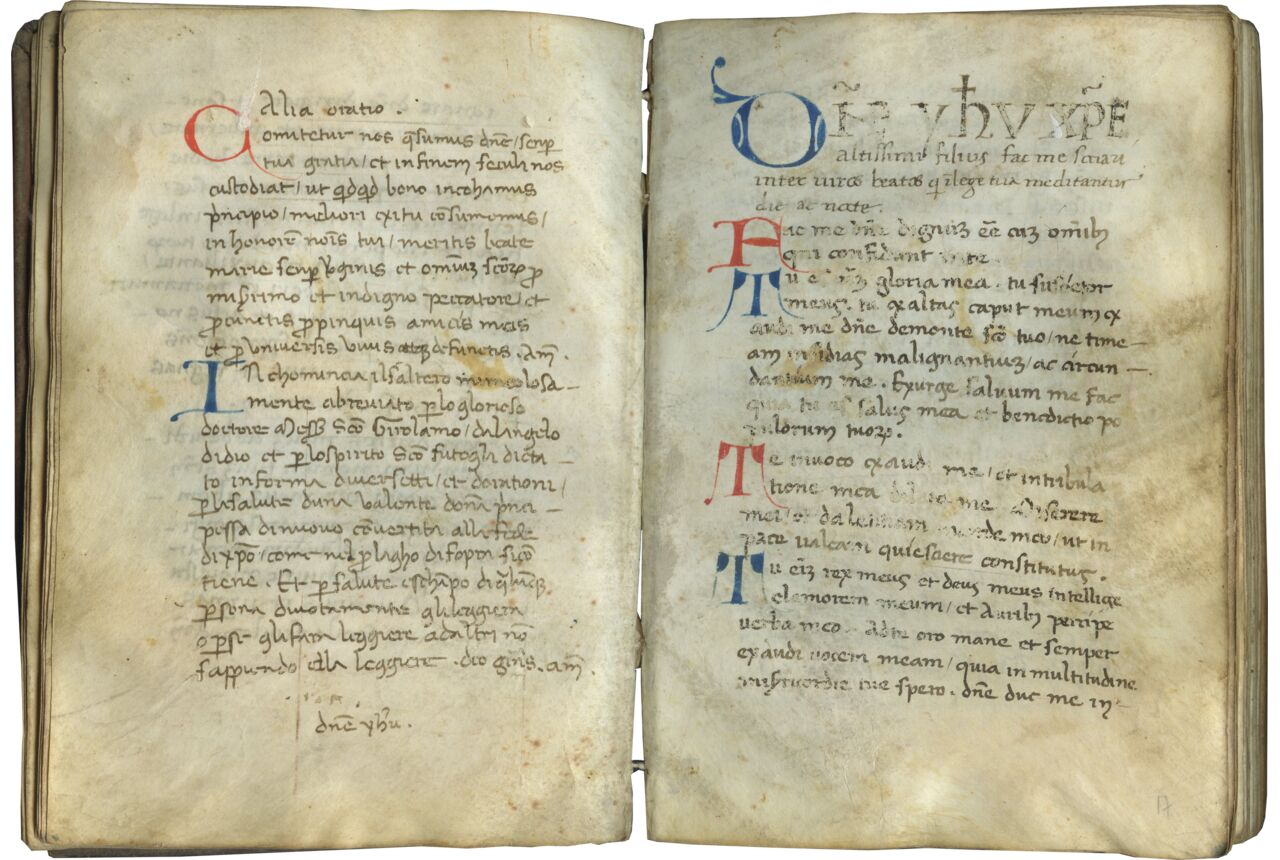 Alia oratio .
Comitetur nos q̄sumus dn̄e / senp̄
tua gratia / et in finem seculi nos
custodiat / ut qd̄qd̄ bono incohamus
p̄ncipio / meliori exitu cōsumemus /
in honorē nōis tui / meritis beate
marie senp̄ v̓ginis et omiuʒ scōꝝ ꝑ
miss̓rimo et indigno peccatore / et
ꝑ cunctis ꝓpinquis amicis meis
et ꝑ universis vivis atqʒ defunctis . Am̄ .
INchomincia il saltero
mente abreviato ꝑ lo glorioso
doctore Mess̄ Scō Girolamo / dal angelo
didio et ꝑ lo spirito Scō futogli dicta –
to in forma di versetti / et dorationi /
ꝑ la salute duna valente dōna p̄nci –
pessa di nuovo cōvertita alla fede
di xp̄o / come nel ꝓlagho di sopra si cō
tiene . Et ꝑ salute e schampo di q̄lūnqʒ
ꝑsona divotamente gli leggiera
o ꝑ se gli fara leggiere ad altri nō
sappiendo ella leggiere . deo gr̄as . am̄ .
dn̄e yh̄u .
DÑE YħV XP̄E
altissimi filius fac me sociari
inter viros beatos q̄ i lege tua meditantur
die ac nocte .
Fac me dn̄e dignuʒ eē cuʒ omībꝫ
qui confidant in te .
Tu es dn̄s gloria mea . tu susceptor
meus . tu exaltas caput meum ex
audi me dn̄e de monte scō tuo / ne time –
am insidias malignantiuʒ / ac circun –
dantium me . Exurge salvum me fac
quia tu es salus mea et benedictio po
pulorum tuoꝝ .
Te invoco exaudi me / et in tribula
tione mea me . Miserere
mei / et da letitiam in corde meo / ut in
pace valeam quiescere constitutus .
Tu eīʒ rex meus et deus meus intellige
clamorem meum / et Auribꝫ percipe
verba mea . Ad te oro mane et semper
exaudi vocem meam / quia in multitudine
mis̓ricordie tue spero . dn̄e duc me in –
17